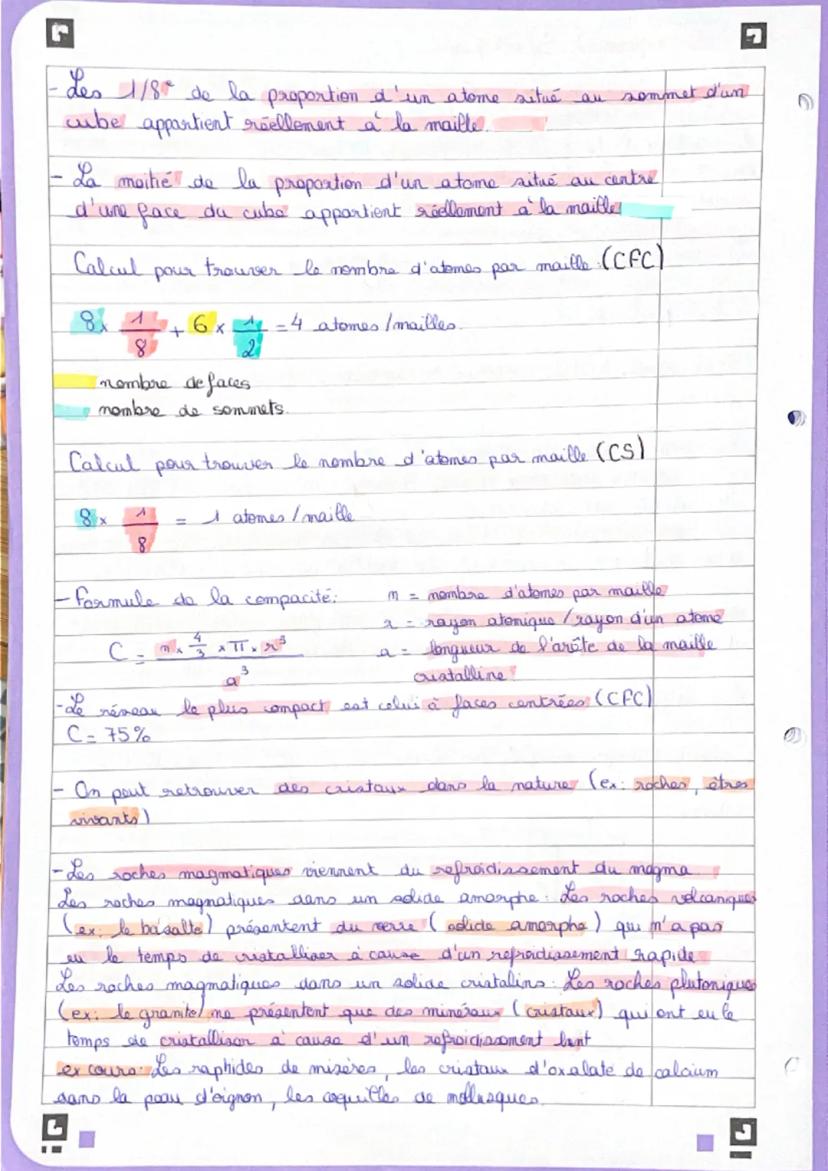 - Les 1/8e de la proportion d'un atome situé au sommet d'un
cube appartient réellement à la maille.
- La moitié de la proportion d'un atome situé au centre
d'une face du cube appartient réellement à la maille
Calcul pour trouver le nombre d'atomes par maille : (CFC)
8 x 1/8 + 6 x 1/2 = 4 atomes / mailles.
nombre de faces
nombre de sommets.
Calcul pour trouver le nombre d'atomes par maille (CS)
8 x 1/8 = 1 atomes / maille
- Formule de la compacité: n = nombre d'atomes par maille
r = rayon atomique / rayon d'un atome
C = (n x 4/3 x π x r³) / a³ a = longueur de l'arête de la maille
cristalline
- Le réseau le plus compact est celui à faces centrées (CFC)
C = 75%
- On peut retrouver des cristaux dans la nature (ex: roches, êtres
vivants)
- Les roches magmatiques viennent du refroidissement du magma.
Les roches magmatiques dans un solide amorphe : Les roches volcaniques
(ex: le basalte) présentent du verre (solide amorphe) qui n'a pas
eu le temps de cristalliser à cause d'un refroidissement rapide
Les roches magmatiques dans un solide cristalins : Les roches plutoniques
(ex: le granite) ne présentent que des minéraux (cristaux) qui ont eu le
temps de cristalliser à cause d'un refroidissement lent
ex cours: Les raphides de misères, les cristaux d'oxalate de calcium
dans la peau d'oignon, les coquilles de mollusques.